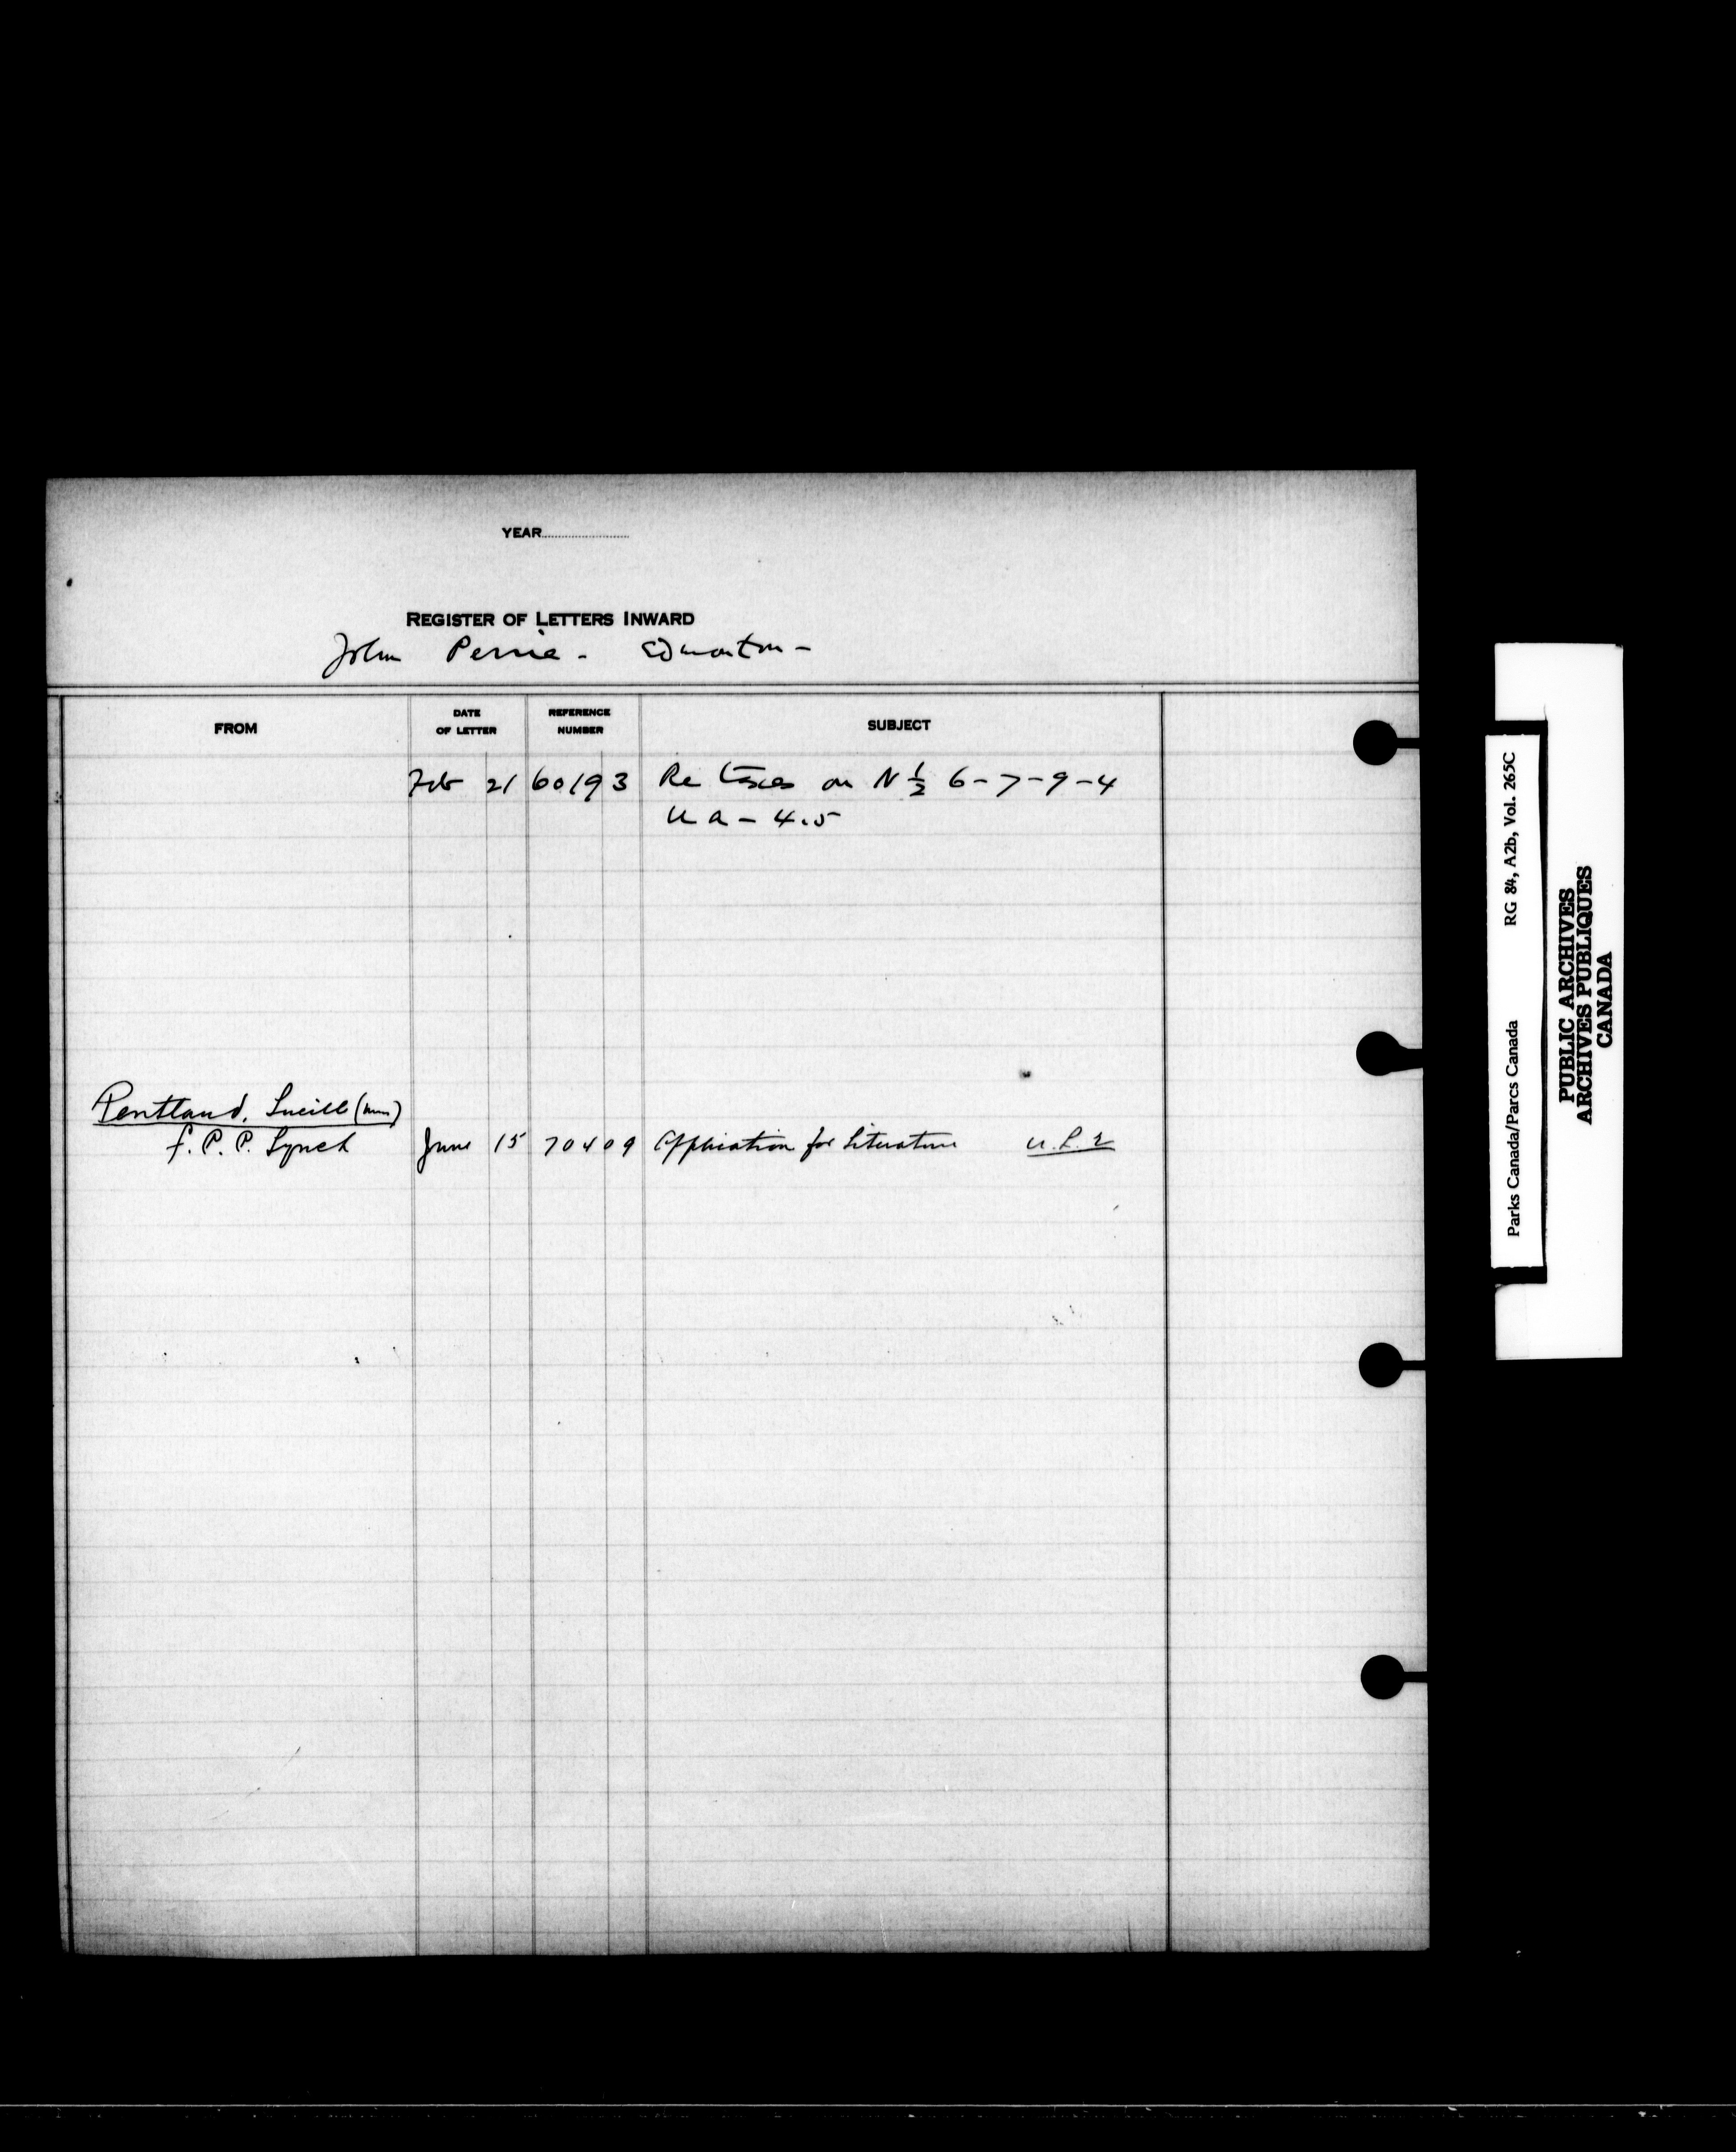 YEAR
REGISTER OF LETTERS INWARD
John Perrie - Edmonton -
FROM DATE OF LETTER REFERENCE NUMBER SUBJECT
Feb 21 60193 Re Taxes on N ½ 6-7-9-4
U a - 4.5
Pentland, Lucille (Miss)
f. P. P. Lynch June 15 70409 Application for Literature U.L.2
Parks Canada/Parcs Canada RG 84, A2b, Vol. 265C
PUBLIC ARCHIVES
ARCHIVES PUBLIQUES
CANADA